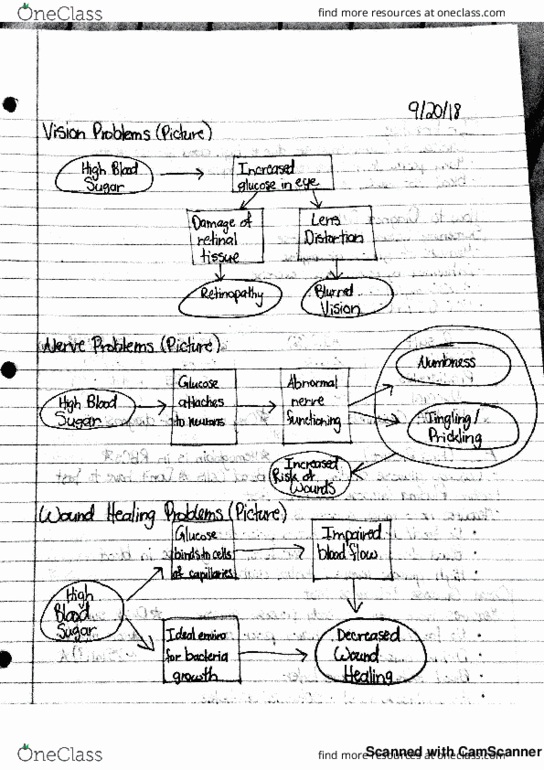 OneClass
find more resources at oneclass.com
9/20/18
Vision Problems (Picture)
High Blood
Sugar
Increased
glucose in eye
Damage of
retinal
tissue
Lens
Distortion
Retinopathy
Blurred
Vision
Nerve Problems (Picture)
High Blood
Sugar
Glucose
attaches
to neurons
Abnormal
nerve
functioning
Numbness
Tingling/
Prickling
Increased
Risk of
Wounds
Wound Healing Problems (Picture)
High
Blood
Sugar
Glucose
binds to cells
of capillaries
Impaired
blood flow
Ideal enviro
for bacteria
growth
Decreased
Wound
Healing
OneClass
find more resources at oneclass.com
Scanned with CamScanner